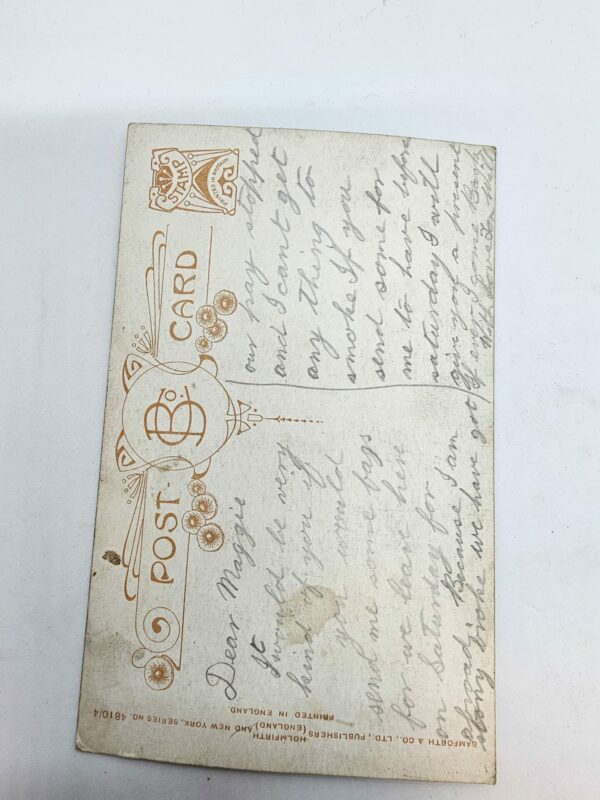 POST CARD
B & Co.
STAMP
PRINTED IN BRITAIN
Dear Maggie
It would be very
kind of you if
you would
send me some bags
for we leave here
on Saturday for
abroad Because I am
stony broke we have got
our pay stopped
and I cant get
any thing to
smoke If you
send some for
me to have before
saturday I will
give you a present
if ever I come Back
BAMFORTH & CO., LTD., PUBLISHERS (ENGLAND) AND NEW YORK, SERIES NO. 4810/4
HOLMFIRTH
PRINTED IN ENGLAND.